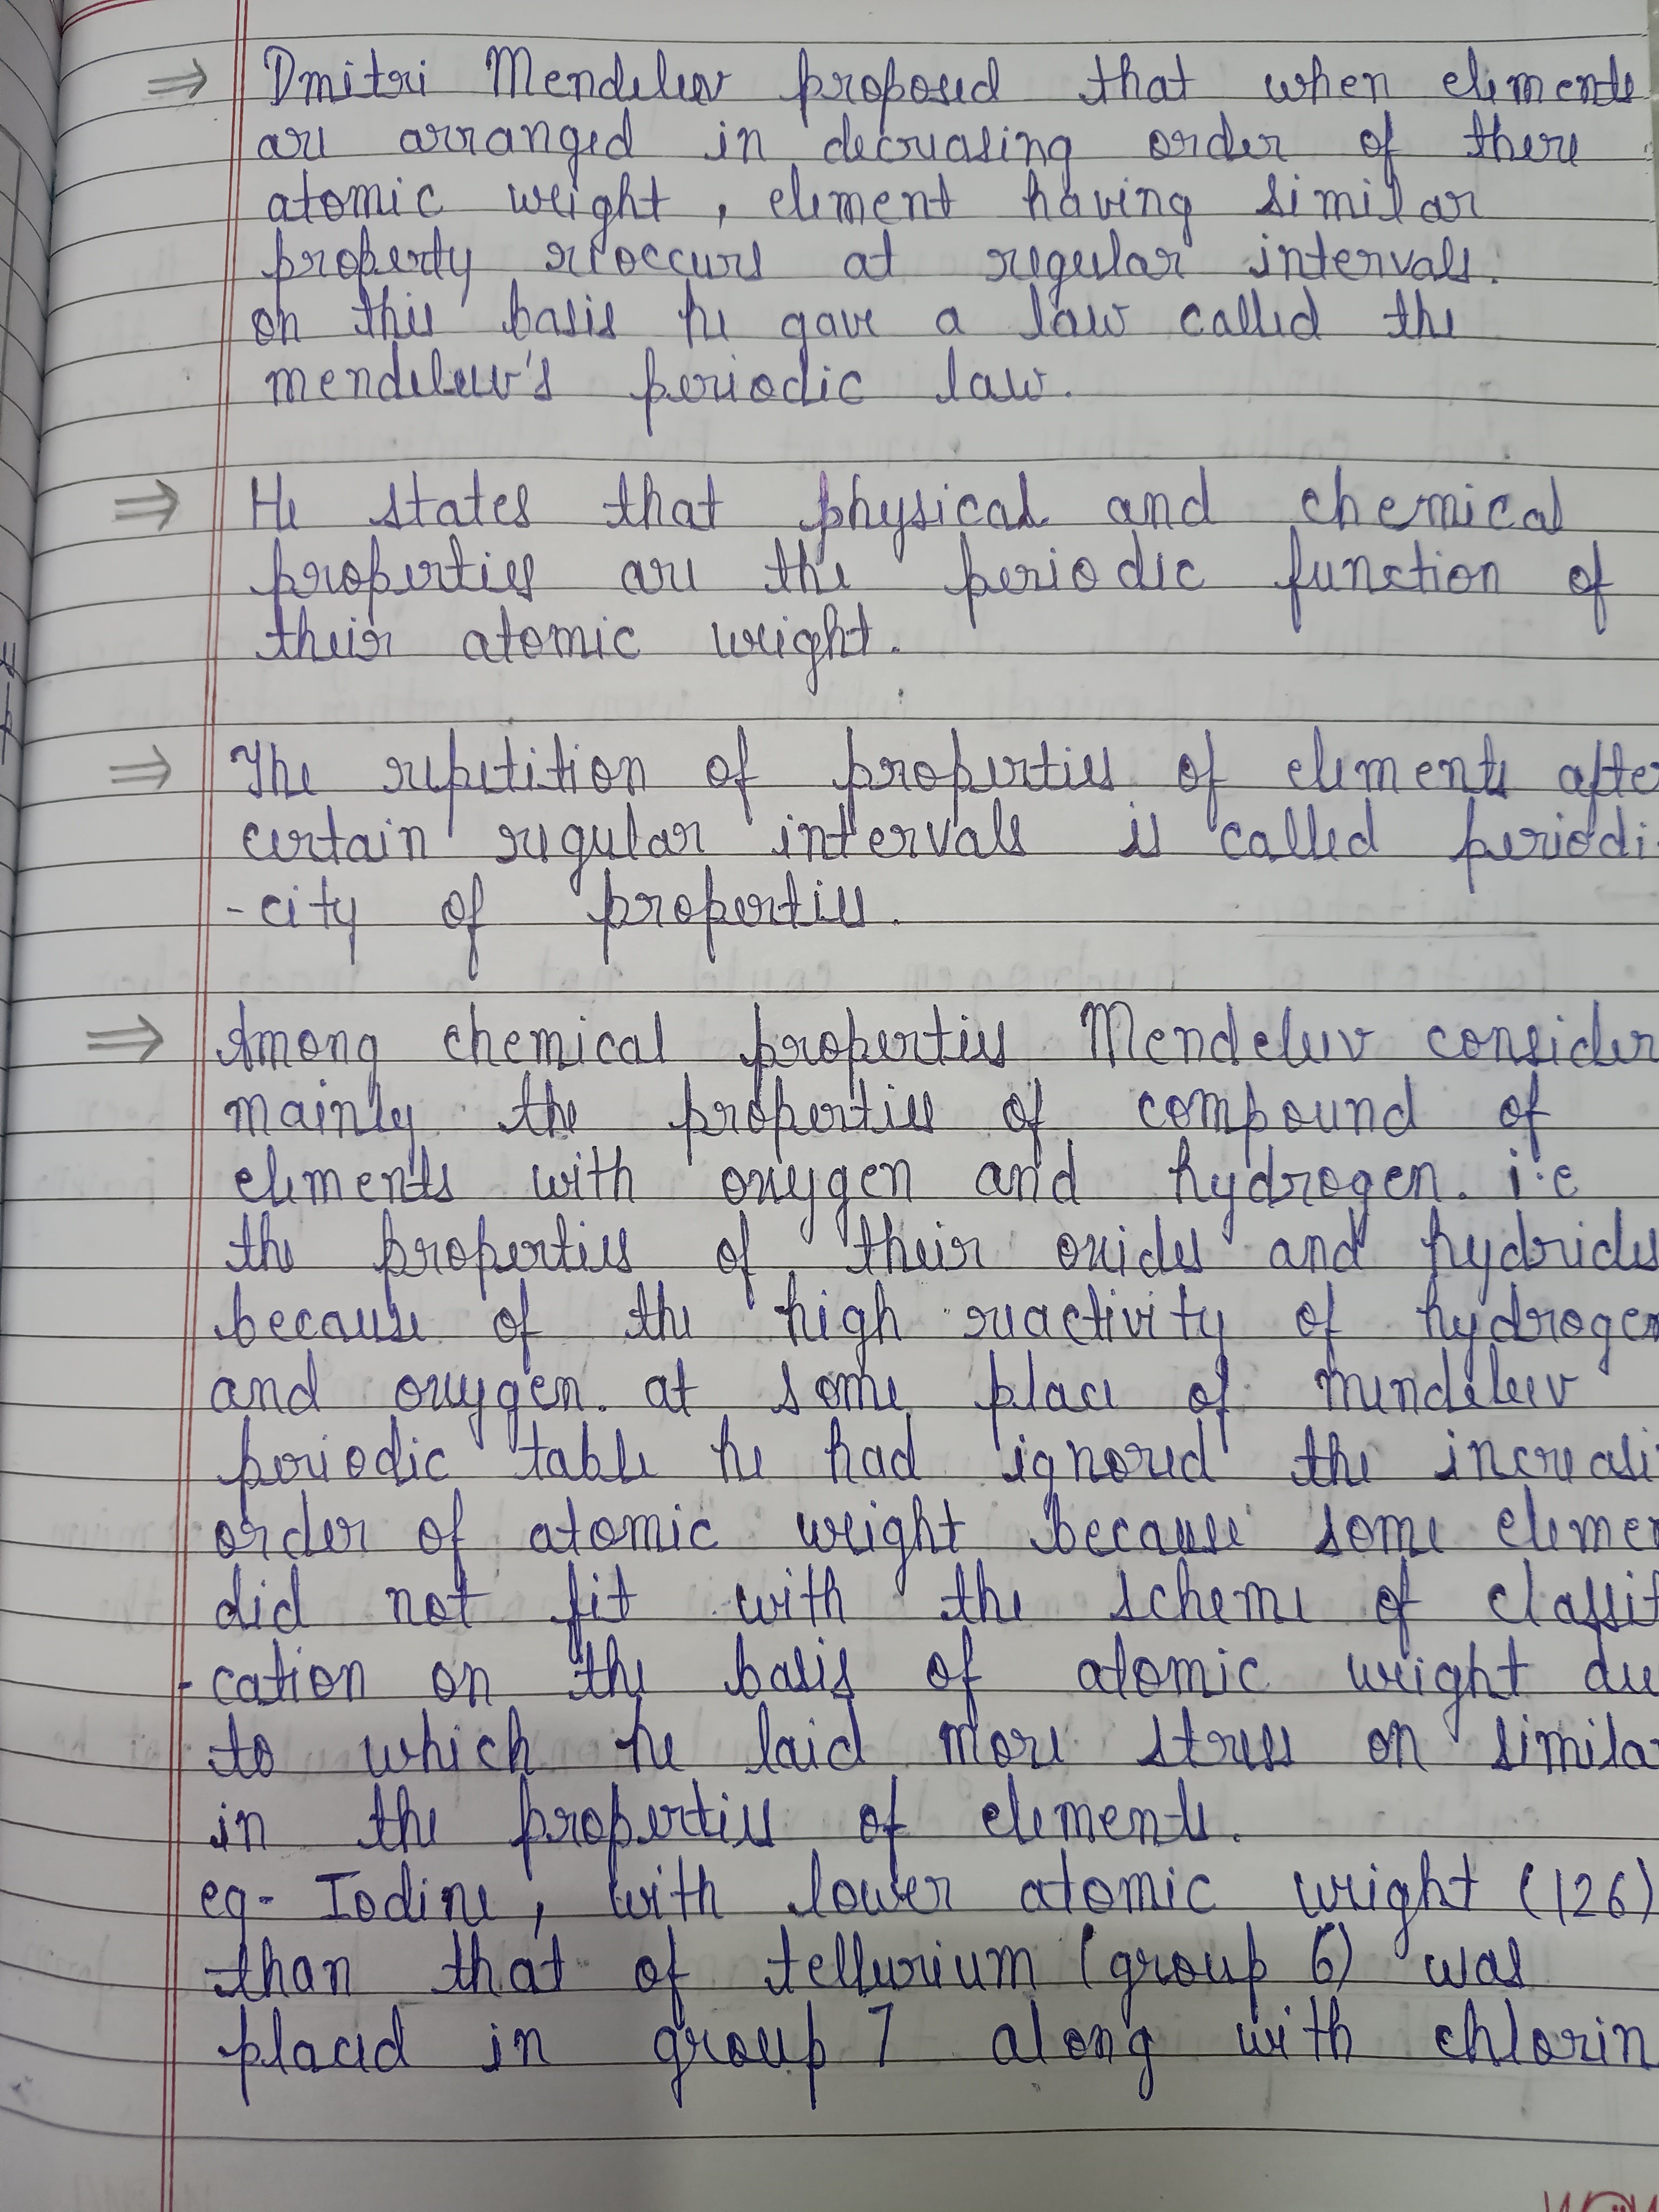 ⇒ Dmitri Mendeleev proposed that when elements
are arranged in decreasing order of there
atomic weight, element having similar
property reoccurs at regular intervals.
on this basis he gave a law called the
mendeleev's periodic law.
⇒ He states that physical and chemical
properties are the periodic function of
their atomic weight.
⇒ The repetition of properties of elements afte
certain regular intervals is called periodi
-city of properties.
⇒ Among chemical properties Mendeleev consider
mainly the properties of compound of
elements with oxygen and hydrogen. i.e
the properties of their oxides and hydrides
because of the high reactivity of hydrogen
and oxygen. at some place of mendeleev
periodic table he had ignored the increasi
order of atomic weight because some elemen
did not fit with the scheme of classif
-cation on the basis of atomic weight due
to which he laid more stress on simila
in the properties of elements.
eg- Iodine, with lower atomic weight (126)
than that of tellurium (group 6) was
placed in group 7 along with chlorin